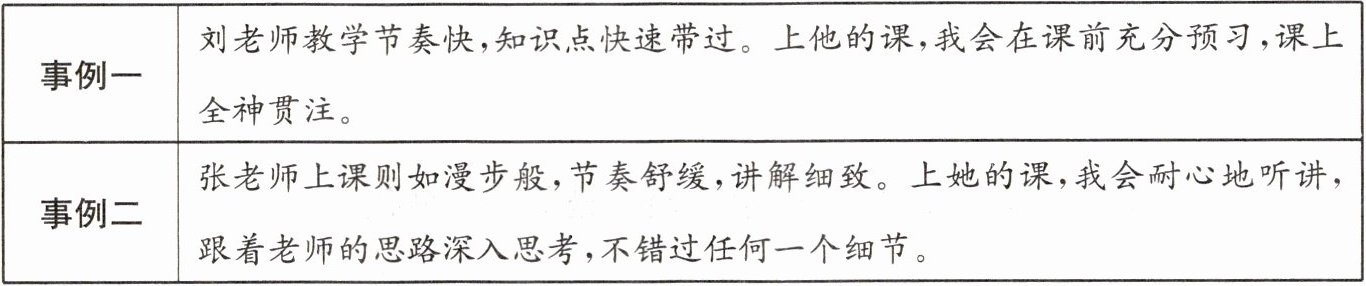 事例一
刘老师教学节奏快,知识点快速带过。上他的课,我会在课前充分预习,课上
全神贯注。
事例二
张老师上课则如漫步般,节奏舒缓,讲解细致。上她的课,我会耐心地听讲,
跟着老师的思路深入思考,不错过任何一个细节。